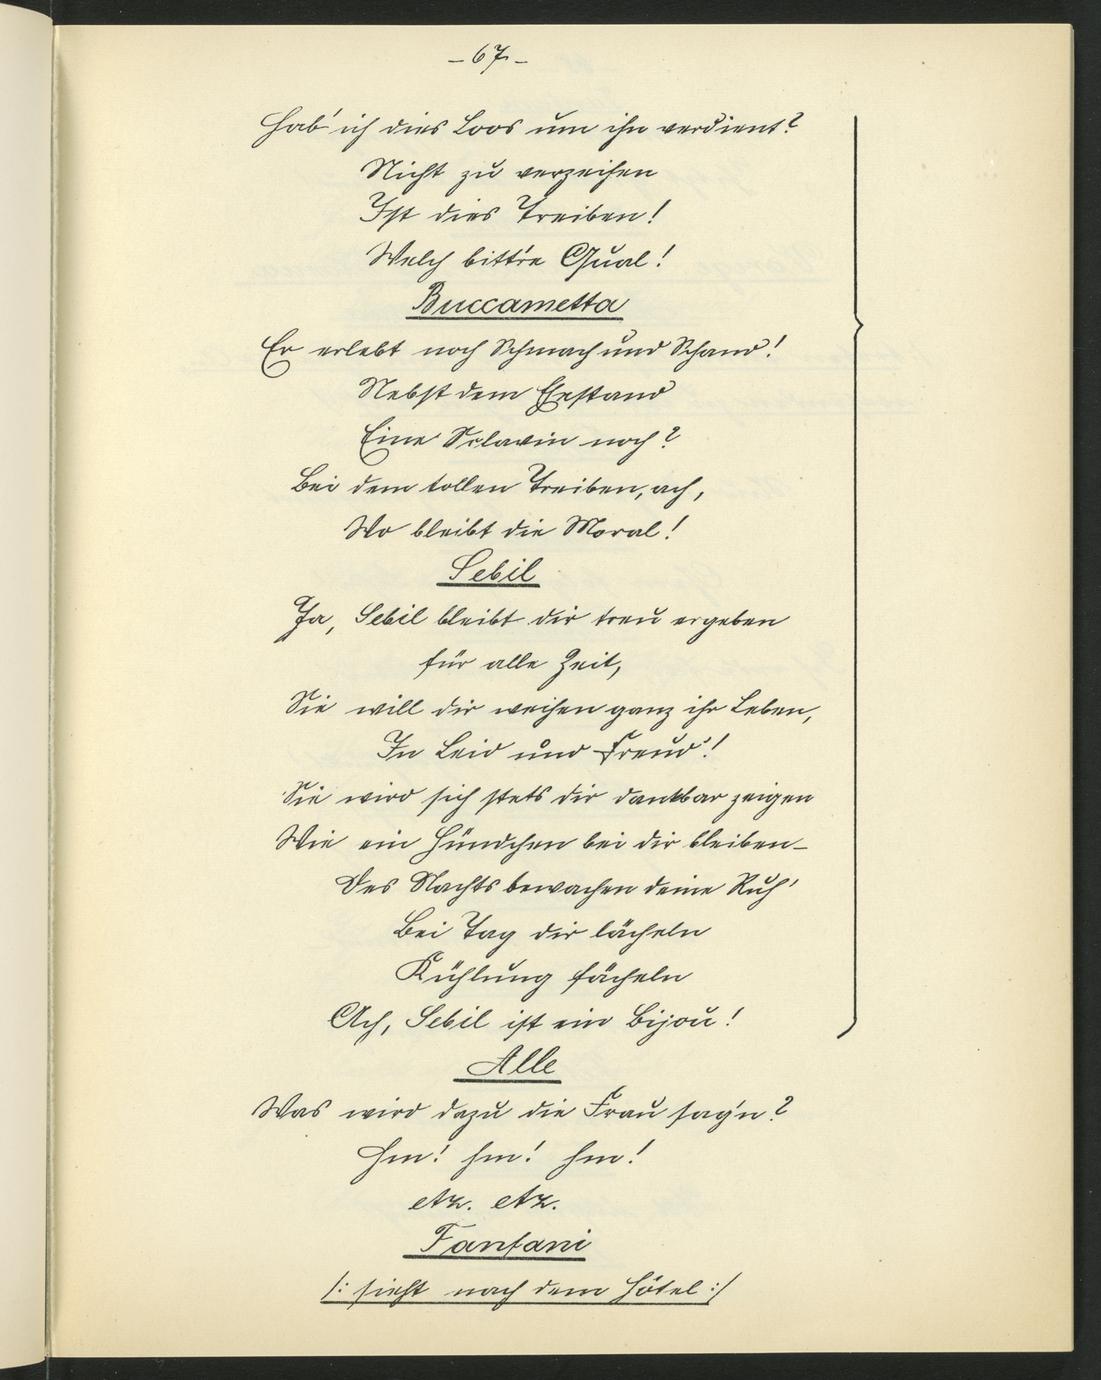 - 67 -
Hab' ich dies Loos um ihn verdient?
Nicht zu verzeihen
Ist dies Treiben!
Welch bitt're Qual!
Buccametta
Er erlebt noch Schmach und Schand'!
Nebst dem Ehestand
Eine Sclavin noch?
Bei dem tollen Treiben, ach,
Wo bleibt die Moral!
Sebil
Ja, Sebil bleibt dir treu ergeben
für alle Zeit,
Sie will dir weihen ganz ihr Leben,
In Leid und Freud'!
Sie wird sich stets dir dankbar zeigen
Wie ein Hündchen bei dir bleiben -
Des Nachts bewachen deine Ruh'
Bei Tag dir lächeln
Kühlung fächeln
Ach, Sebil ist ein Bijou!
Alle
Was wird dazu die Frau sag'n?
Hm! hm! hm!
etz. etz.
Fanfani
/: sieht nach dem Hôtel :/